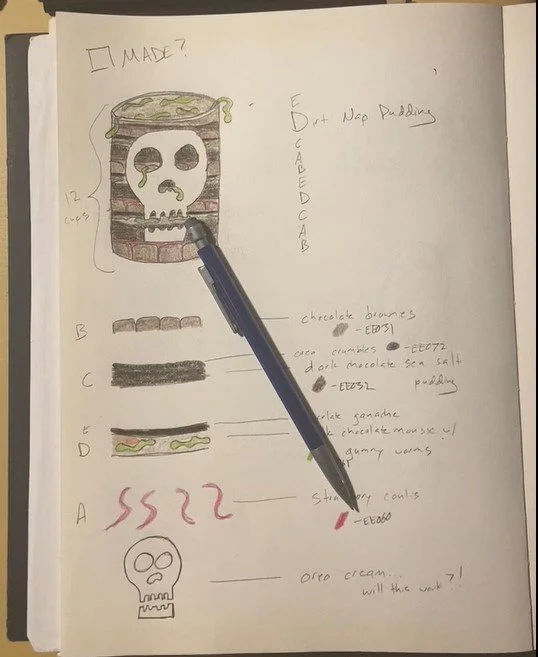 MADE?
E
Dirt Nap Pudding
C
A
B
E
D
C
A
B
12 cups
B
chocolate brownies
- EE031
C
coco crumbles - EEC72
dark mocolate sea salt pudding
- EE032
E
ganache
D
chocolate mousse w/
gummy worms
A
- EE060
oreo cream...
will this work?!